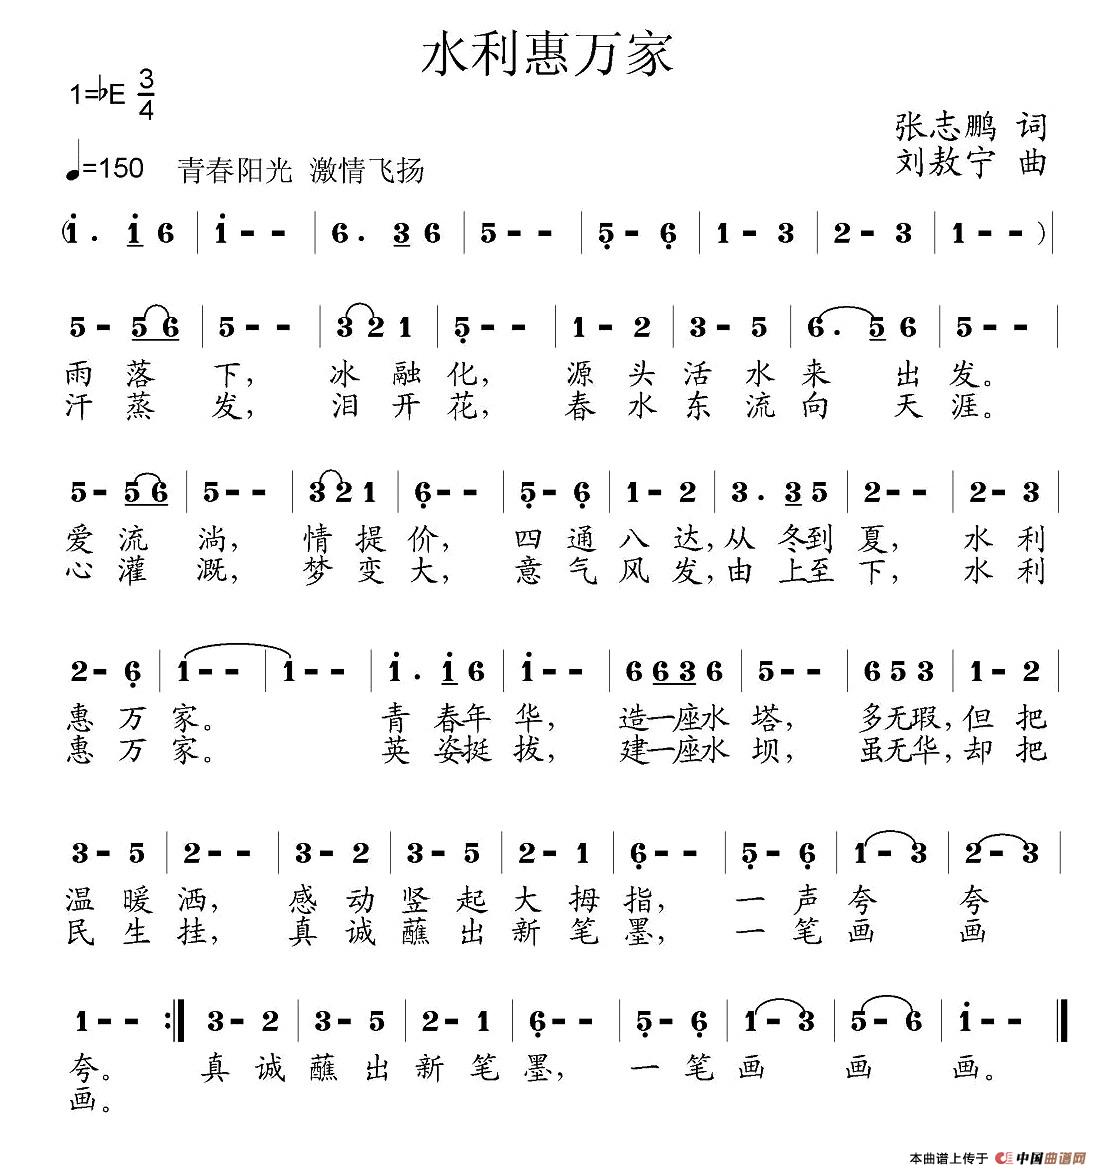 水利惠万家
1=♭E 3/4
张志鹏 词
刘敖宁 曲
♩=150 青春阳光 激情飞扬
(i . i 6 | i - - | 6 . 3 6 | 5 - - | 5̣ - 6̣ | 1 - 3 | 2 - 3 | 1 - - ) |
5 - 5 6 | 5 - - | 3 2 1 | 5̣ - - | 1 - 2 | 3 - 5 | 6 . 5 6 | 5 - - |
雨 落 下, 冰 融 化, 源 头 活 水 来 出 发。
汗 蒸 发, 泪 开 花, 春 水 东 流 向 天 涯。
5 - 5 6 | 5 - - | 3 2 1 | 6̣ - - | 5̣ - 6̣ | 1 - 2 | 3 . 3 5 | 2 - - | 2 - 3 |
爱 流 淌, 情 提 价, 四 通 八 达, 从 冬到 夏, 水 利
心 灌 溉, 梦 变 大, 意 气 风 发, 由 上至 下, 水 利
2 - 6̣ | 1 - - | 1 - - | i . i 6 | i - - | 6 6 3 6 | 5 - - | 6 5 3 | 1 - 2 |
惠 万 家。 青 春年 华, 造一座水 塔, 多无瑕, 但 把
惠 万 家。 英 姿挺 拔, 建一座水 坝, 虽无华, 却 把
3 - 5 | 2 - - | 3 - 2 | 3 - 5 | 2 - 1 | 6̣ - - | 5̣ - 6̣ | 1 - 3 | 2 - 3 |
温 暖 洒, 感 动 竖 起 大 拇 指, 一 声 夸 夸
民 生 挂, 真 诚 蘸 出 新 笔 墨, 一 笔 画 画
1 - - :‖ 3 - 2 | 3 - 5 | 2 - 1 | 6̣ - - | 5̣ - 6̣ | 1 - 3 | 5 - 6 | i - - ‖
夸。 真 诚 蘸 出 新 笔 墨, 一 笔 画 画 画。
画。
本曲谱上传于 中国曲谱网